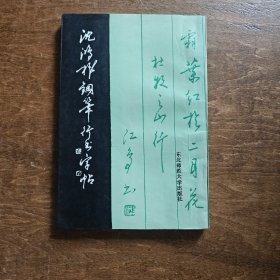 霜叶红于二月花
杜牧之山行
江鸟书
东北师范大学出版社
沈鸿根钢笔行书字帖